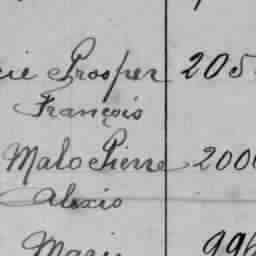 cie Prosper 205
François
Malo Pierre 200
Alexis
Marie 996